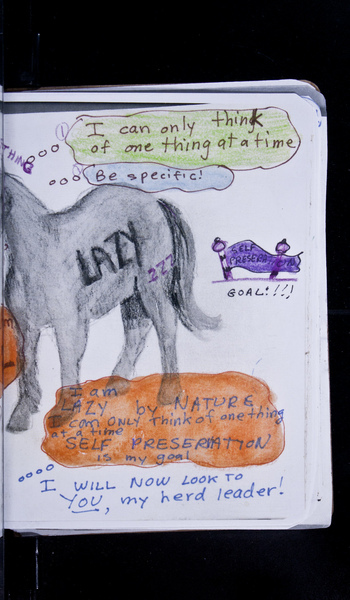 1
I can only think
of one thing at a time
THING
Be specific!
LAZY
ZZZ
SELF
PRESERVATION
GOAL!!!
I am
LAZY by NATURE
I can ONLY Think of one thing
at a time
SELF PRESERVATION
is my goal
I WILL NOW LOOK TO
YOU, my herd leader!